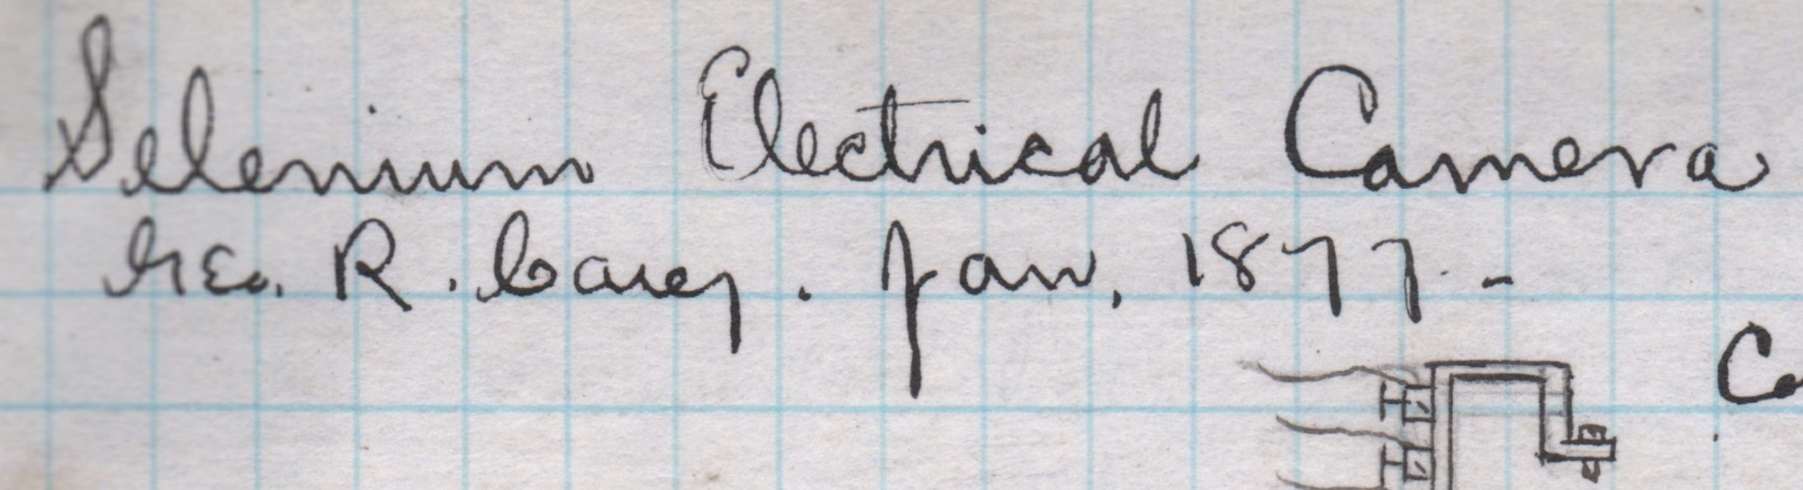 Selenium Electrical Camera
Geo. R. Carey. Jan, 1877. -